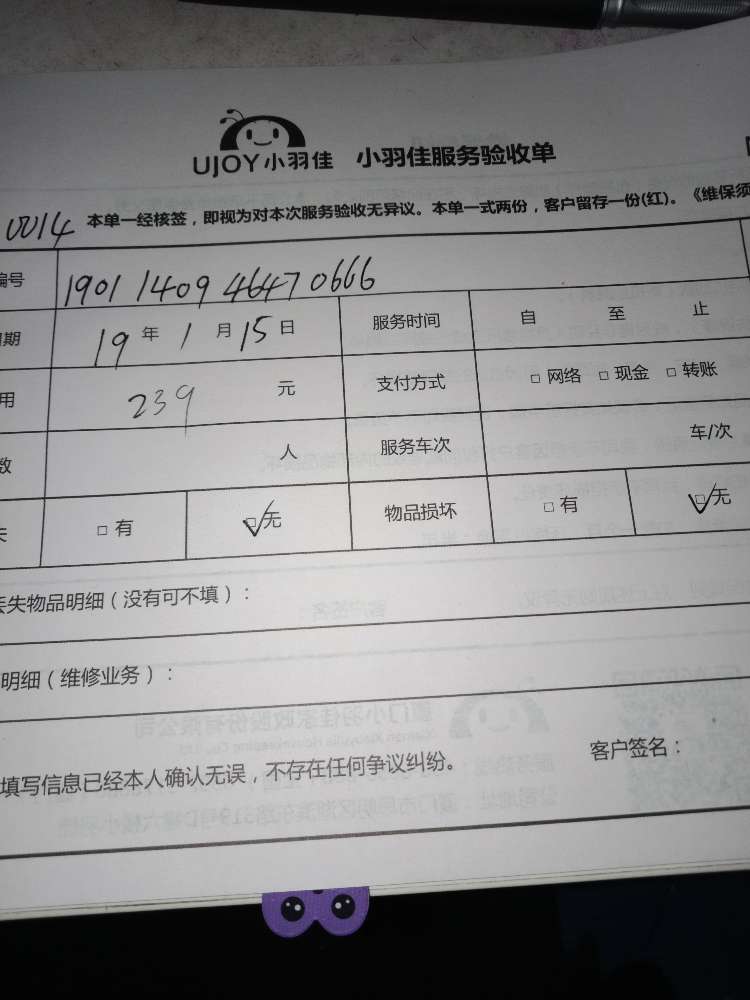 UJOY小羽佳 小羽佳服务验收单
0014 本单一经核签，即视为对本次服务验收无异议。本单一式两份，客户留存一份(红)。《维保须
编号 1901 1409 4647 0666
期 19年1月15日 服务时间 自 至 止
用 239 元 支付方式 □ 网络 □ 现金 □ 转账
数 人 服务车次 车/次
失 □ 有 ☑无 物品损坏 □ 有 ☑无
丢失物品明细（没有可不填）：
明细（维修业务）：
填写信息已经本人确认无误，不存在任何争议纠纷。 客户签名：